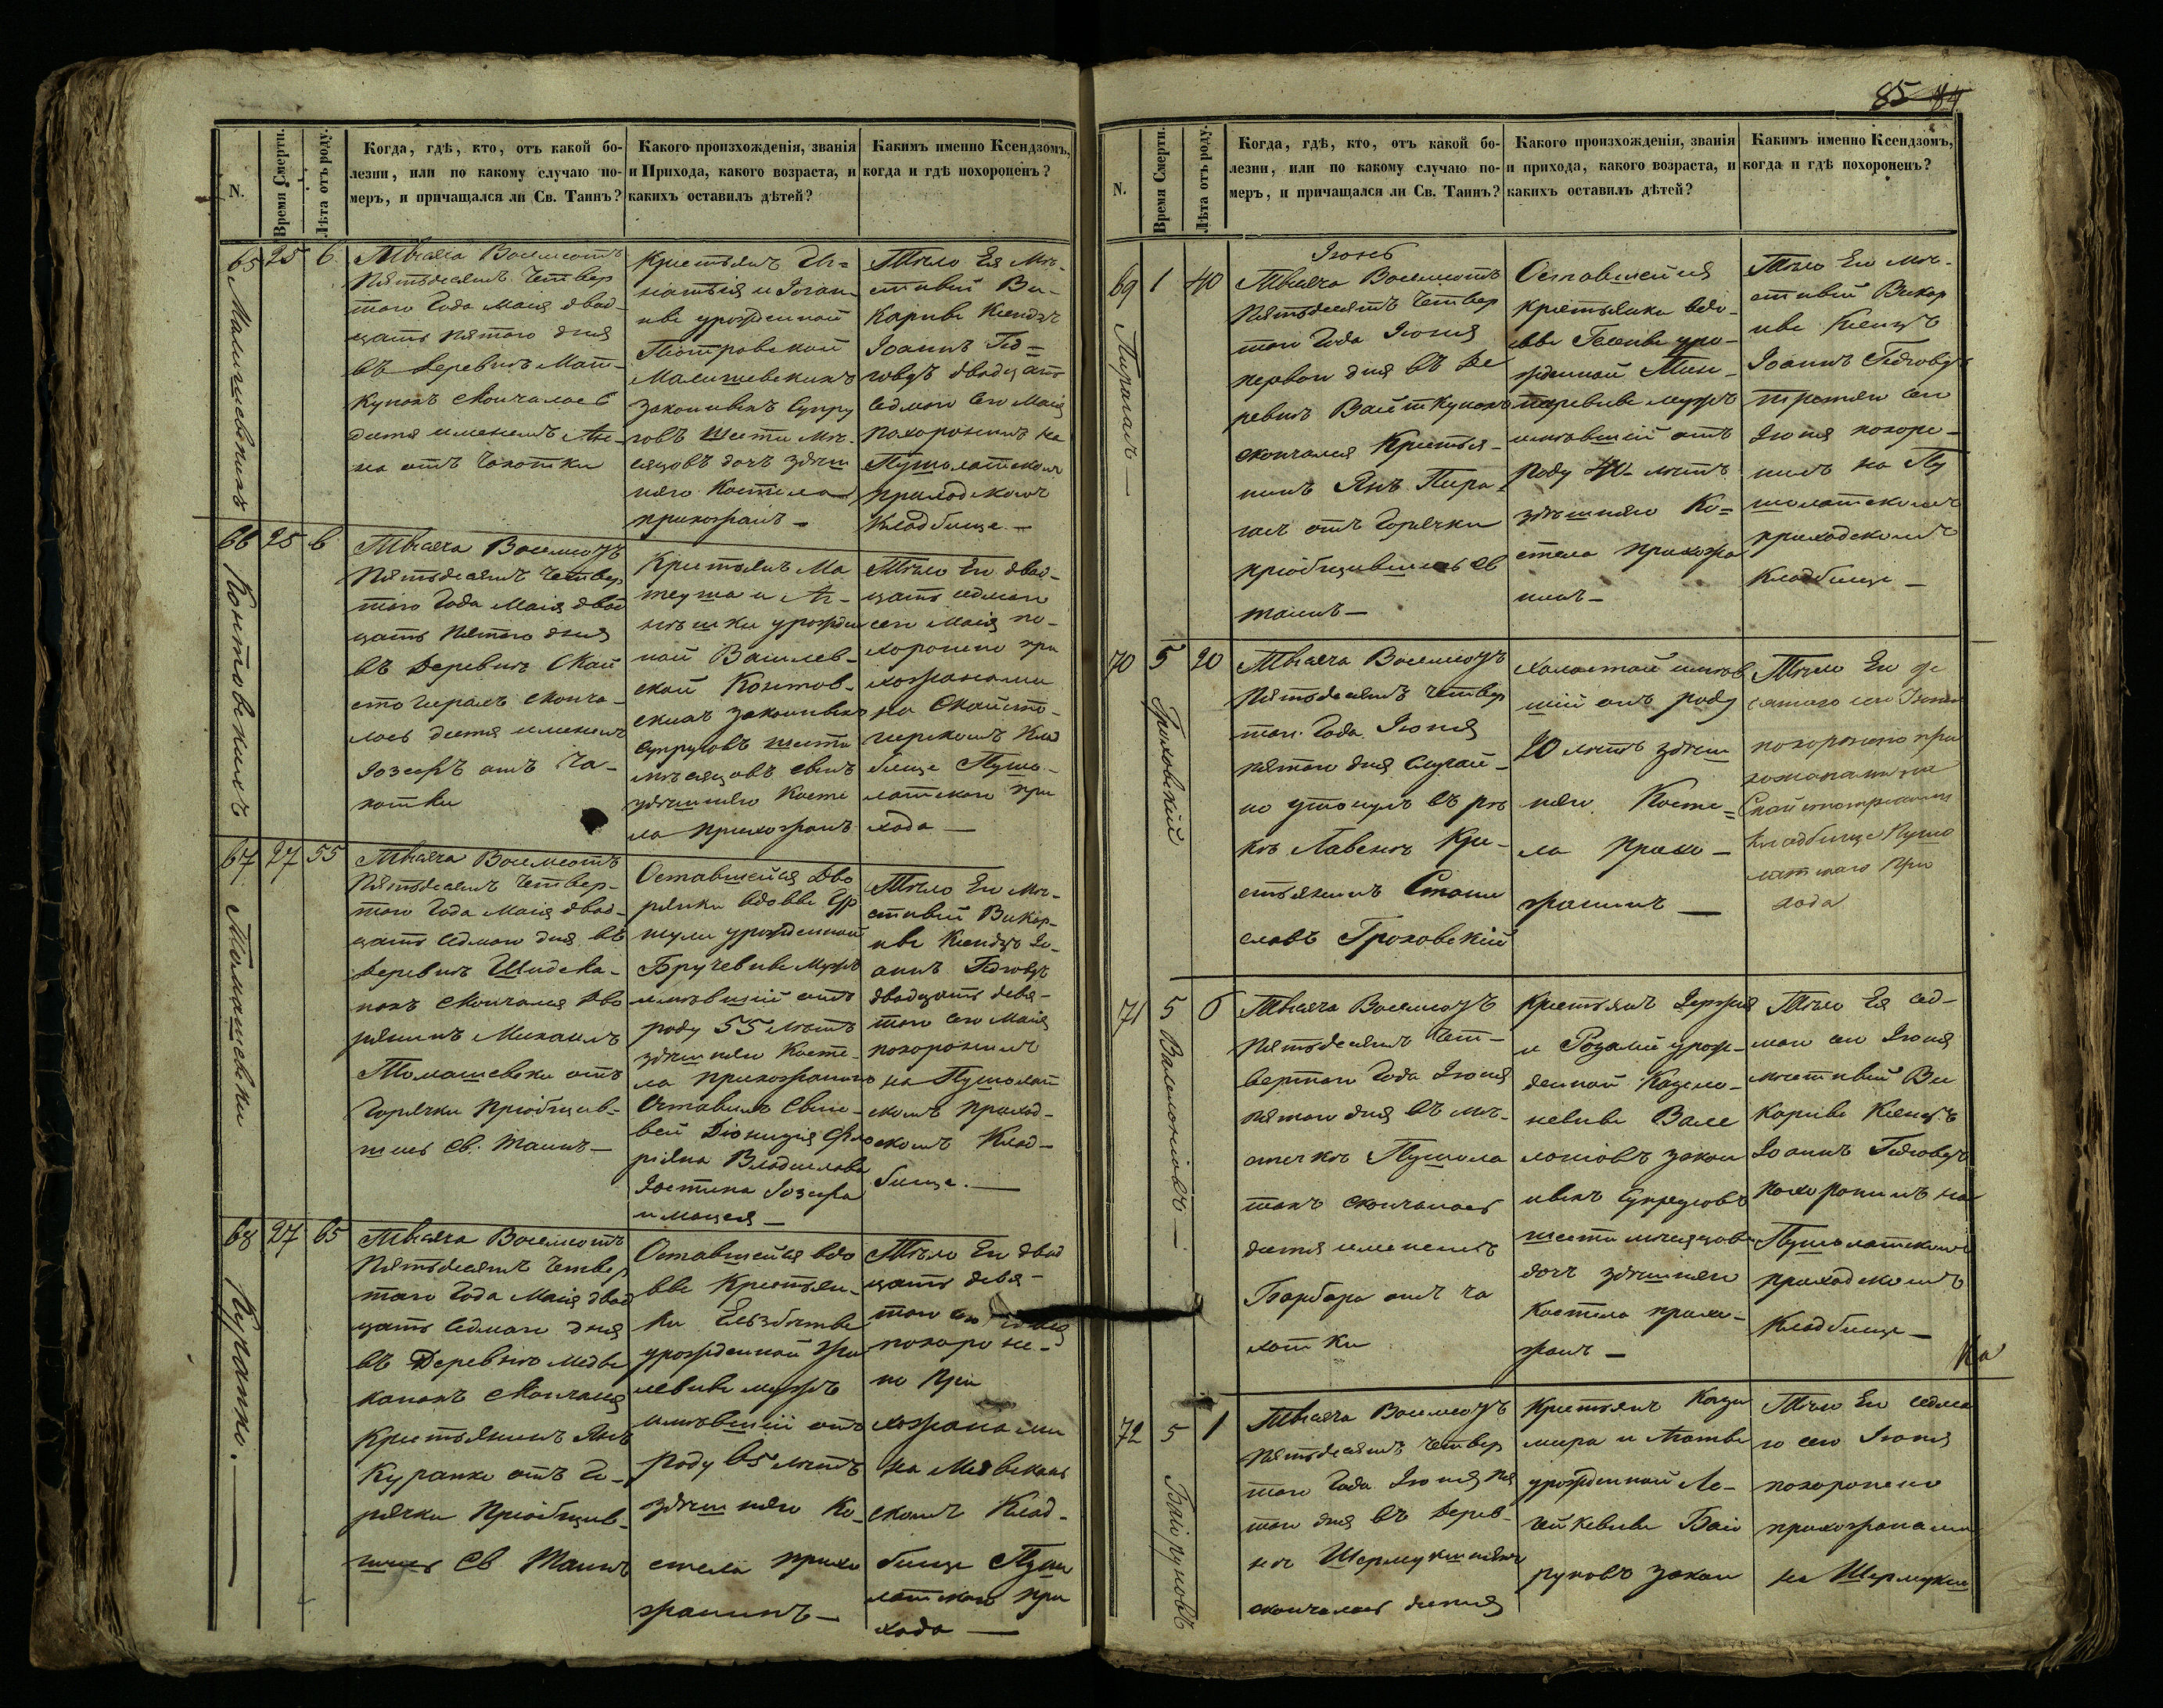 85 84
N.
Время Смерти.
Лѣта отъ роду.
Когда, гдѣ, кто, отъ какой бо-
лезни, или по какому случаю по-
меръ, и причащался ли Св. Таинъ?
Какого произхожденія, званія
и Прихода, какого возраста, и
какихъ оставилъ дѣтей?
Какимъ именно Ксендзомъ,
когда и гдѣ похороненъ?
65 25 6
Тысяча Восемсотъ
Пятьдесятъ Четвер
таго Года Маія двад-
цать пятого дня
въ Деревнѣ Мат-
кунахъ скончалось
дитя именемъ Ан-
на отъ чахотки
Крестьянъ Иг-
натія и Іоган-
ны урожденной
Піотровской
Малишевскихъ
законныхъ Супру
говъ шести мѣ-
сяцовъ дочь здѣш
няго Костела
прихожанъ
Тѣло Ея мѣ-
стный Ви-
карный Ксендзъ
Іоаннъ Гед-
говдъ двадцать
седмого сего Маія
похоронилъ на
Пушолатскомъ
приходскомъ
кладбище
66 25 6
Тысяча Восемсотъ
Пятьдесятъ Четвер
таго Года Маія двад
цать пятого дня
въ Деревнѣ Скай
стогирахъ сконча-
лось дитя именемъ
Іозефъ отъ Ча-
хотки
Крестьянъ Ма
теуша и Аг-
нѣшки урожден
ной Василев-
ской Контов-
скихъ законныхъ
супруговъ шести
мѣсяцовъ сынъ
здѣшняго Косте
ла прихожанъ
Тѣло Его двад-
цать седмого
сего Маія по-
хоронено при
хожанами
на Скайсто-
гирскомъ Клад
бище Пушо-
латскаго при
хода
67 27 55
Томашевски
Тысяча Восемсотъ
Пятьдесятъ Четвер-
таго Года Маія двад-
цать седмого дня въ
Деревнѣ
скончался Дво
рянинъ Михаилъ
Томашевски отъ
Горячки Пріобщив-
шись Св. Таинъ
Оставшейся Дво
рянки вдовы Ур
шули урожденной
мужъ
имѣвшій отъ
роду 55 лѣтъ
здѣшняго Косте-
ла прихожанинъ
Оставилъ сыно-
вей Діонизія Фло
ріяна Владислава
Юстина Іозефа
Тѣло Его мѣ-
стный Викар-
ный Ксендзъ Іо-
аннъ Гедговдъ
двадцать девя-
того сего Маія
похоронилъ
на Пушолат
скомъ приход-
скомъ Клад-
бище.
68 27 65
Куранко.
Тысяча Восемсотъ
Пятьдесятъ Четвер
таго Года Маія двад
цать седмого дня
въ Деревнѣ Медве
канахъ скончался
Крестьянинъ Янъ
Куранко отъ Го-
рячки Пріобщив-
шись Св Таинъ
Оставшейся вдо
вы Крестьян-
ки Ельзбѣты
урожденной
мужъ
имѣвшій отъ
роду 65 лѣтъ
здѣшняго Ко-
стела прихо
жанинъ
Тѣло Его двад
цать девя-
того сего Маія
похороне-
но при
хожанами
на
скомъ Клад-
бище Пушо
латскаго при
хода
N.
Время Смерти.
Лѣта отъ роду.
Когда, гдѣ, кто, отъ какой бо-
лезни, или по какому случаю по-
меръ, и причащался ли Св. Таинъ?
Какого произхожденія, званія
и прихода, какого возраста, и
какихъ оставилъ дѣтей?
Какимъ именно Ксендзомъ,
когда и гдѣ похороненъ?
69 1 40
Пирагасъ
Іюнь
Тысяча Восемсотъ
Пятьдесятъ Четвер
таго Года Іюня
первого дня въ Де
ревнѣ Вайткунахъ
скончался Крестья-
нинъ Янъ Пира-
гасъ отъ Горячки
пріобщившись Св
таинъ
Оставшейся
крестьянки вдо-
вы уро-
жденной
мужъ
имѣвшій отъ
роду 40 лѣтъ
здѣшняго Ко-
стела прихожа
нинъ
Тѣло Его мѣ-
стный Викар
ный Ксендзъ
Іоаннъ Гедговдъ
третяго сего
Іюня похоро-
нилъ на Пу
шолатскомъ
приходскомъ
Кладбище
70 5 20
Гроховскій
Тысяча Восемсотъ
Пятьдесятъ Четвер
таго Года Іюня
пятого дня случай-
но утонулъ въ рѣ
кѣ Лавенѣ Кре-
стьянинъ Стани
славъ Гроховскій
Холостой имѣв
шій отъ роду
20 лѣтъ здѣш
няго Косте-
ла прихо-
жанинъ
Тѣло Его
сего Іюня
похоронено при
хожанами на
Скайстогирскомъ
Кладбище Пушо
латскаго При
хода
71 5 6
Тысяча Восемсотъ
Пятьдесятъ Чет-
вертаго Года Іюня
пятого дня въ мѣ-
стечкѣ Пушола
тахъ скончалось
дитя именемъ
Барбара отъ ча
хотки
Крестьянъ Іержія
и Розаліи урож-
денной
Вале
законныхъ Супруговъ
шести мѣсяцовъ
дочь здѣшняго
Костела прихо-
жанъ
Тѣло Ея сед-
мого сего Іюня
мѣстный Ви
карный Ксендзъ
Іоаннъ Гедговдъ
похоронилъ на
Пушолатскомъ
приходскомъ
Кладбище
72 5 1
Тысяча Восемсотъ
Пятьдесятъ Четвер
таго Года Іюня пя
того дня въ Дерев-
нѣ
скончалось дитя
Крестьянъ Кази
мира и Агаты
урожденной
закон
Тѣло Его седмо
го сего Іюня
похоронено
прихожанами
на Шермукш